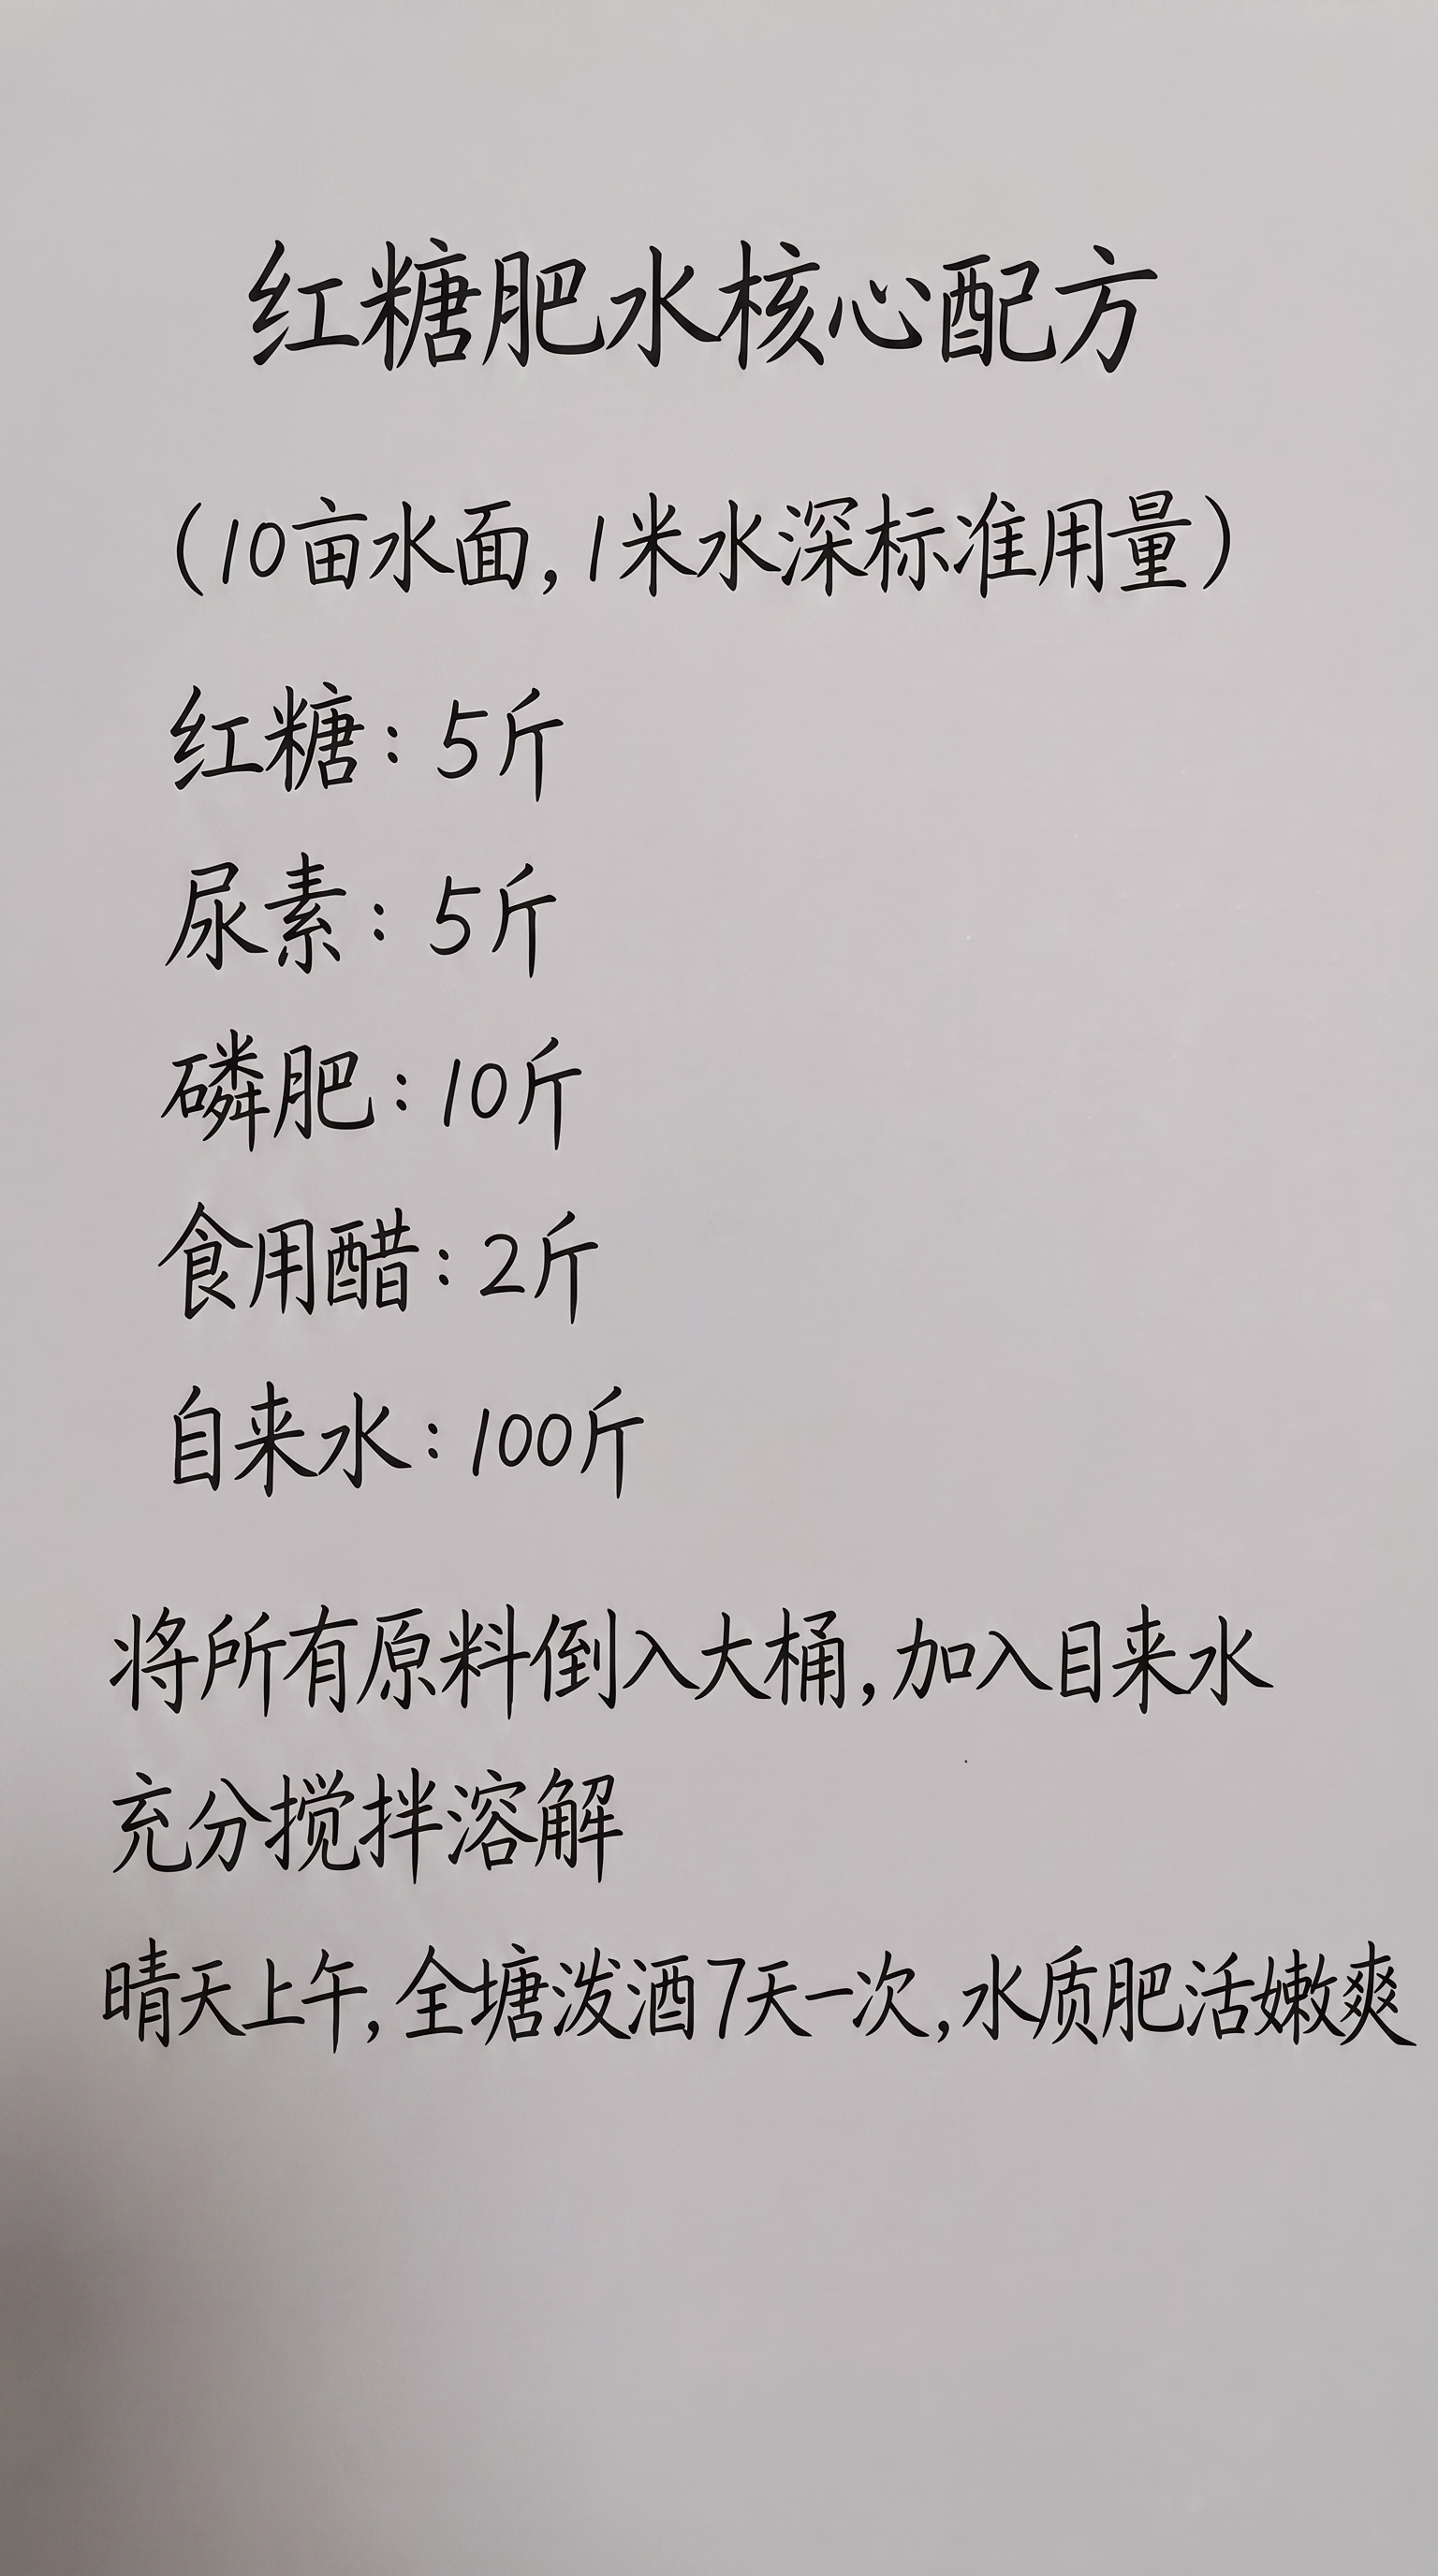 红糖肥水核心配方
(10亩水面,1米水深标准用量)
红糖:5斤
尿素:5斤
磷肥:10斤
食用醋:2斤
自来水:100斤
将所有原料倒入大桶,加入目来水
充分搅拌溶解
晴天上午,全塘泼酒7天一次,水质肥活嫩爽